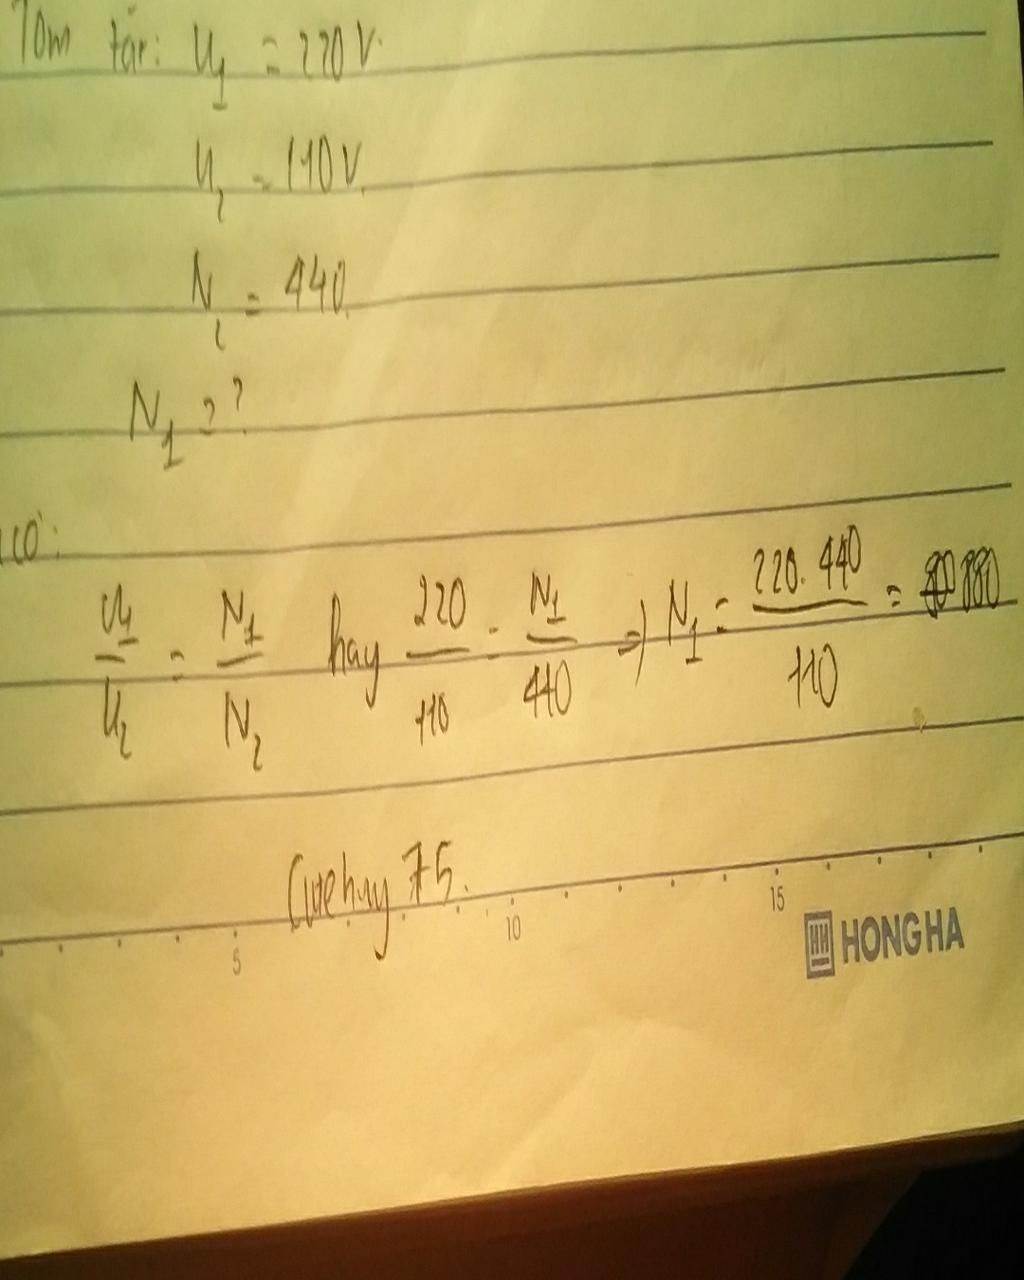 Tóm tắt: U₁ = 220 V.
U₂ = 110 V.
N₂ = 440.
N₁ = ?
có:
U₁/U₂ = N₁/N₂ hay 220/110 = N₁/440 => N₁ = 220.440/110 = 880
75.
5 10 15
HH HONG HA